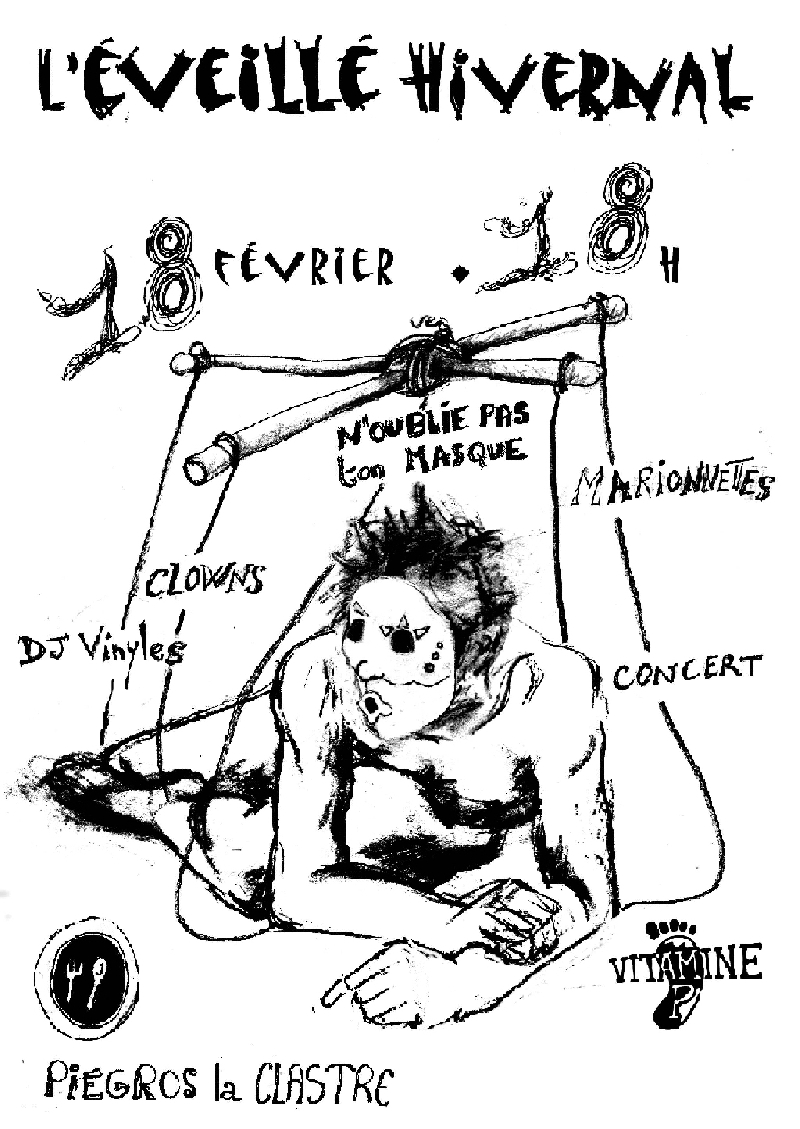 L'ÉVEILLÉ HIVERNAL
18 FÉVRIER . 18 H
N'OUBLIE PAS
ton MASQUE
MARIONNETTES
CLOWNS
DJ Vinyles
CONCERT
VITAMINE
P
PIÉGROS la CLASTRE